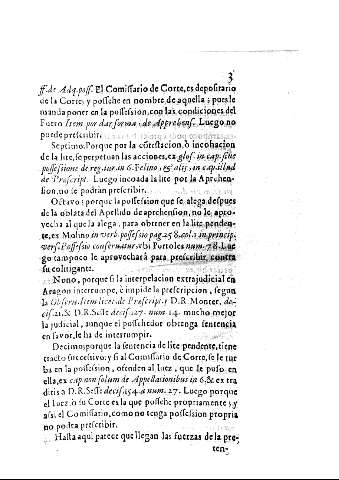 3
ff. de Adq. poss. El Comissario de Corte, es depositario
de la Corte, y possehe en nombre de aquella; pues le
manda poner en la possession, con las condiciones del
Fuero Item por dar forma, de Apprehens. Luego no
puede prescribir.
Septimo. Porque por la cõtestacion, ò incohacion
de la lite, se perpetuan las acciones, ex glos. in cap. illud
de Præscript. Luego incoada la lite por la Aprehen-
sion, no se podràn prescribir.
Octavo: porque la possession que se alega despues
de la oblata del Apellido de aprehension, no le apro-
vecha al que la alega, para obtener en la lite penden-
te, ex Molino in verb. possessio pag. 258. col. 1. in princip.
vers. Possessio consermatur, vbi Portoles num. 78. Lue
go tampoco le aprovecharà para prescribir, contra
su colitigante.
Nono, porque si la interpelacion extrajudicial en
Aragon interrumpe, è impide la prescripcion, segun
la Observ. Item licet de Præscript. y D. R. Monter, de-
cis. 21. & D. R. Sesse decis. 127. num. 14. mucho mejor
la judicial, aunque el possehedor obtenga sentencia
en favor, le ha de interrumpir.
Decimo; porque la sentencia de lite pendente, tiene
tracto successivo; y si al Comissario de Corte, se le tur
ba en la possession, ofenden al Iuez, que le puso en
ella, ex cap. non solum de Appellationibus in 6. & ex tra
ditis à D. R. Sesse decis. 154. à num. 27. Luego porque
el Iuez, ò su Corte es la que possehe propriamente; y
assi el Comissario, como no tenga possession propria
no podrà prescribir.
Hasta aqui parece que llegan las fuerzas de la pre-
ten-